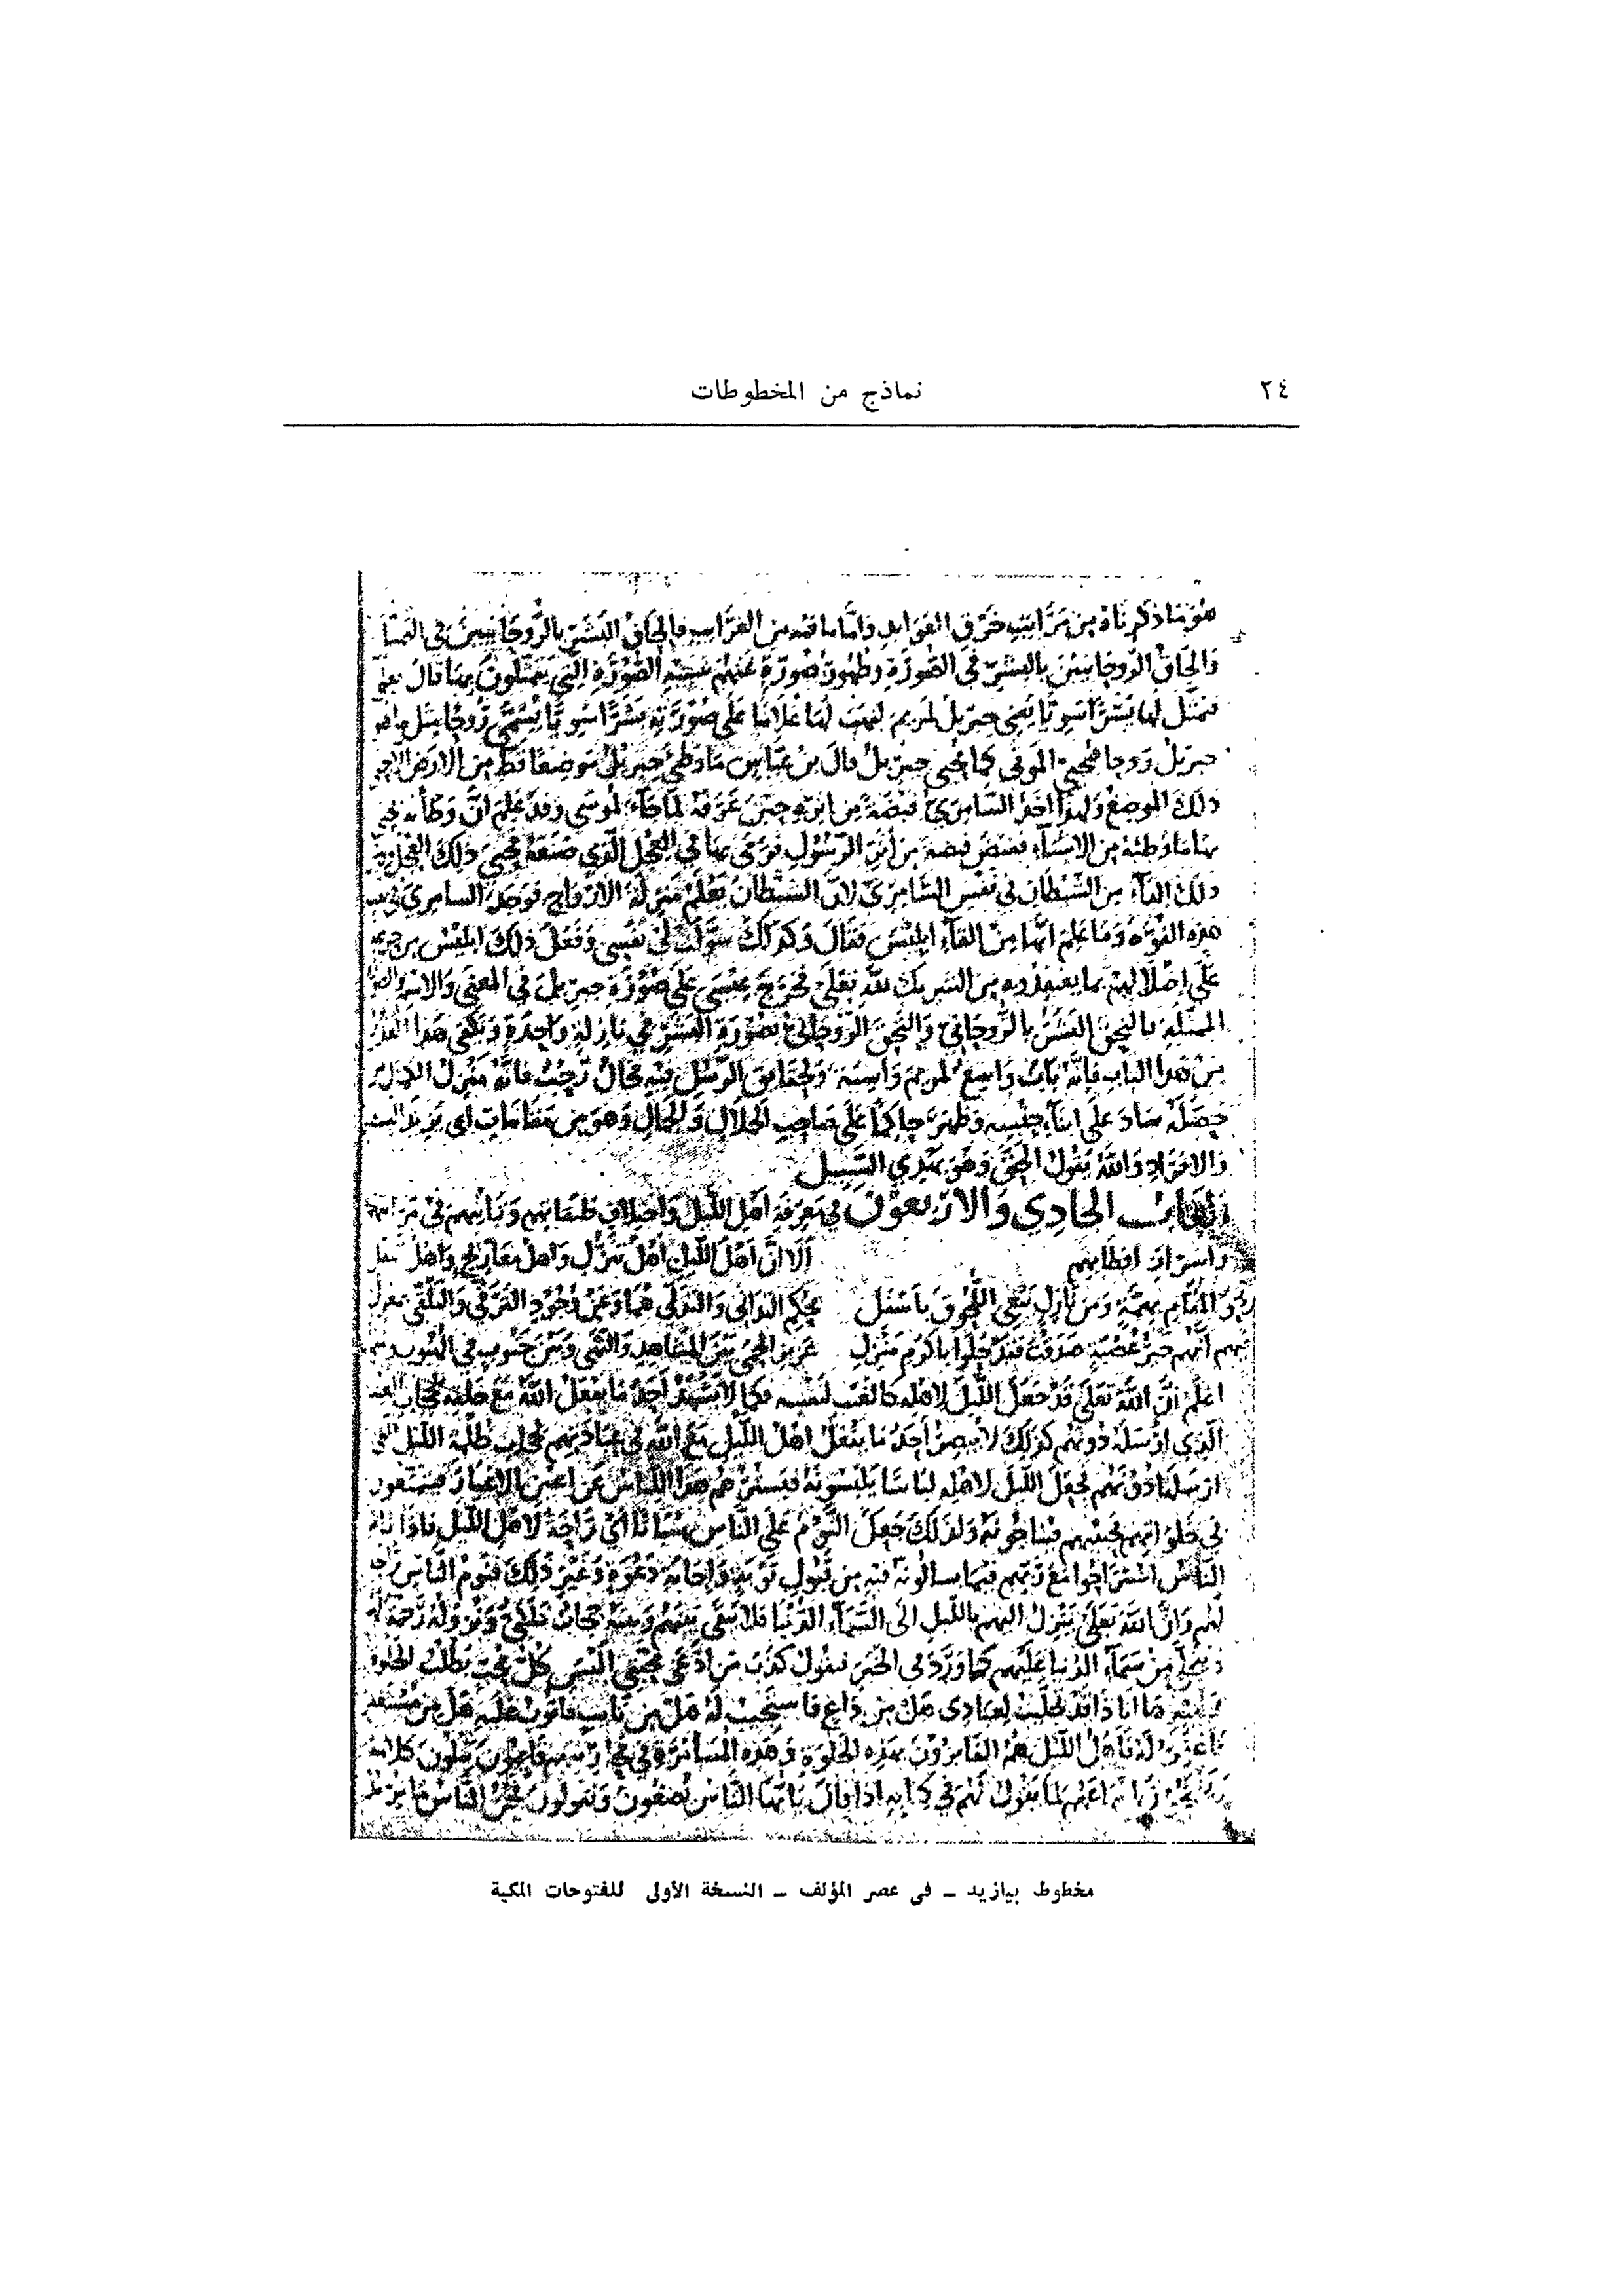 ٢٤
نماذج من المخطوطات
هو ما ذكرناه من مراتب خرق العوايد واما ما فيه من الغرايب فالحاق البشر بالروحانيين في التمثل
والحاق الروحانيين بالبشر في الصورة وظهور صورة عنهم شبيه الصورة التي يتمثلون بها قال تعلى
فتمثل لها بشرا سويا يعني جبريل لمريم ليهب لها غلاما على صورته بشرا سويا يسمى روحا مثل ما هو
جبريل روحا فيحيي الموتى كما يحيي جبريل قال بن عباس ما وطئ جبريل موضعا قط من الارض الا حيي
ذلك الموضع ولهذا اخذ السامري قبضة من اثره حين عرفه لما جاء لموسى وقد علم ان وطأته يحيى
بها ما وطئه من الاشياء فقبض قبضة من اثر الرسول فرمى بها في العجل الذي صنعه فحيي ذلك العجل وكان
ذلك القاء من الشيطان في نفس السامري لان الشيطان يعلم منزلة الارواح فوجد السامري في نفسه
هذه القوة وما علم انها من القاء ابليس فقال وكذلك سولت لي نفسي وفعل ذلك ابليس من حرصه
على اضلالهم بما يعتقدونه من الشريك لله تعلى فخرج عيسى على صورة جبريل في المعنى والاسم
الممثلة فالتحق البشر بالروحاني والتحق الروحاني بصورة البشر في نازلة واحدة ويكفي هذا القدر
من هذا الباب فانه باب واسع لمريم وآسية ولحقايق الرسل فيه مجال رحب فانه منزل الكمال من
حصله ساد على ابناء جنسه وظهر حاكما على صاحب الجلال والجمال وهو من مقامات ابي يزيد البسطامي
والافراد والله يقول الحق وهو يهدي السبيل
الباب الحادي والاربعون في معرفة اهل الليل واختلاف طبقاتهم وتباينهم في مراتبهم
واسرار اقطابهم الا ان اهل الليل اهل تنزل واهل معاريج واهل تنقل
المقام بهمة ومن نازل يبغي اللحوق باسفل بحكم التداني والتدلي هما وعن وجود الترقي والتلقي
انهم خير عصبة صدقت قد حلوا باكرم منزل
اعلم ان الله تعلى قد جعل الليل لاهله كالغيب لنفسه فكما لا يشهد احد ما يفعل الله مع خلقه لحجاب الغيب
الذي ارسله دونهم كذلك لا يبصر احد ما يفعل اهل الليل مع الله في عبادتهم لحجاب ظلمة الليل التي
ارسلها دونهم فجعل الليل لاهله لباسا يلبسونه فيسترهم هذا اللباس عن اعين الاغيار فيتمتعون
في خلواتهم بحبيبهم فيناجونه ولذلك جعل النوم على الناس سباتا اي راحة لاهل الليل فاذا نام
الناس استراحوا مع ربهم فيما يسالونه فيه من قبول توبة واجابة دعوة وغير ذلك فنوم الناس راحة
لهم وان الله تعلى ينزل اليهم بالليل الى السماء الدنيا فلا يبقى بينهم وبينه حجاب فلكي ونزوله رحمة
من سماء الدنيا عليهم كما ورد في الخبر فيقول كذب من ادعى محبتي اليس كل محب يطلب الخلوة
ها انا ذا قد تجليت لعبادي هل من داع فاستجيب له هل من تايب فاتوب عليه هل من مستغفر
فاغفر له فاهل الليل هم الفايزون بهذه الخلوة وهذه المسامرة في محاريبهم يتلون كلامه
لما يقول لهم في كلامه اذا قال يا ايها الناس يصغون ويقولون نحن الناس ما تريد
مخطوط بيازيد – في عصر المؤلف – النسخة الأولى للفتوحات المكية